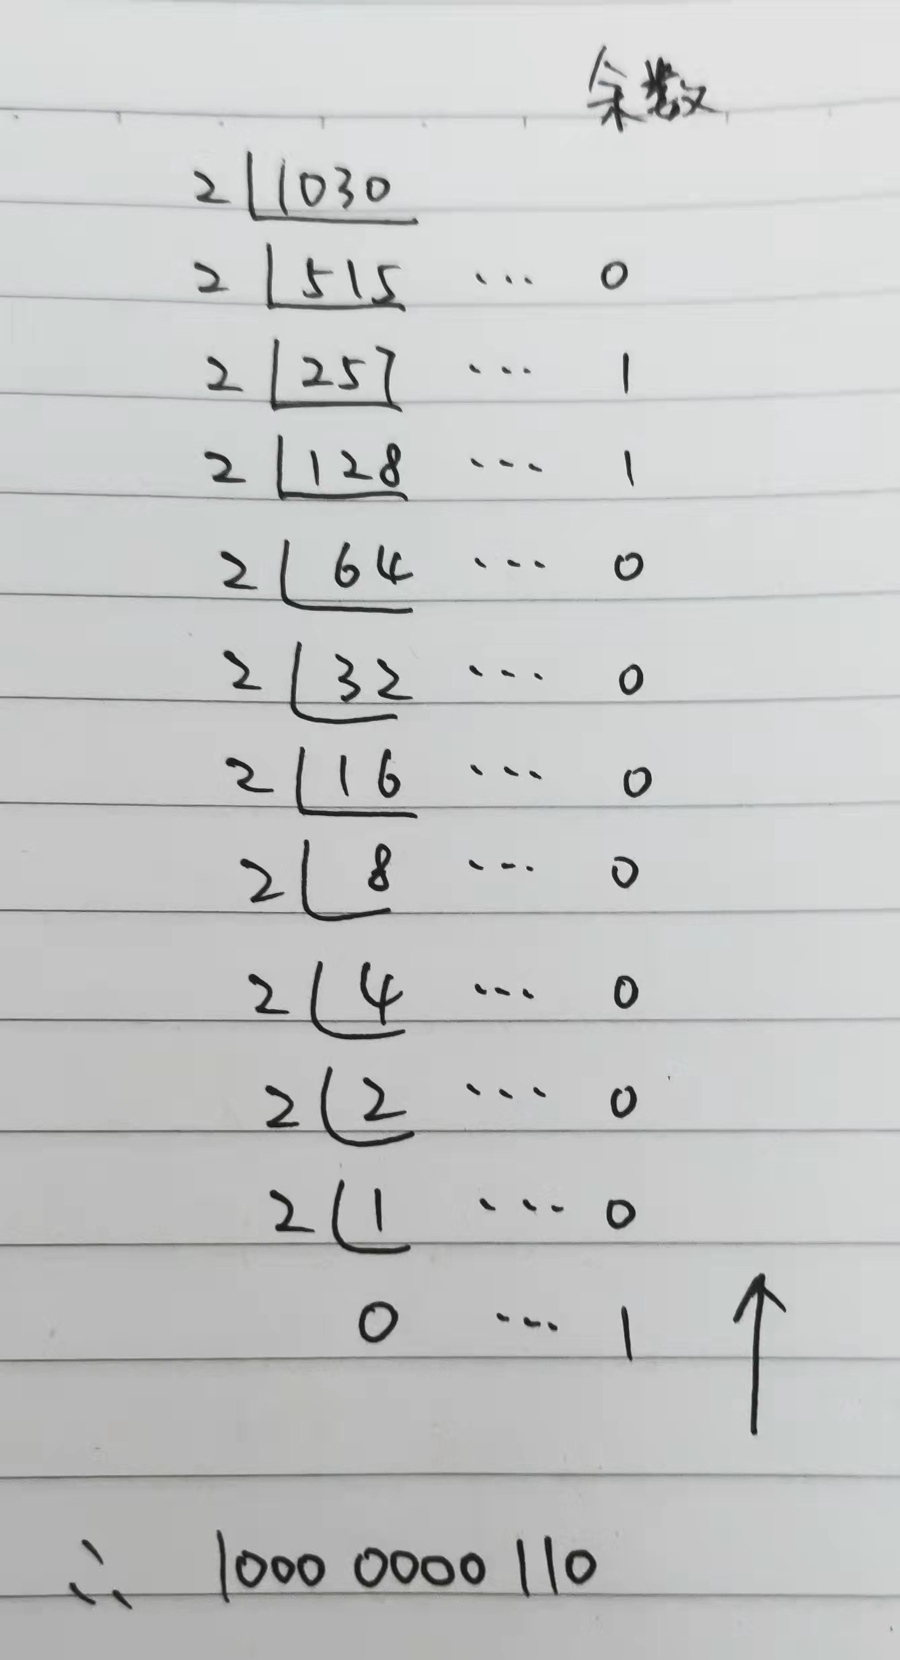 余数
2 1030
2 515 ... 0
2 257 ... 1
2 128 ... 1
2 64 ... 0
2 32 ... 0
2 16 ... 0
2 8 ... 0
2 4 ... 0
2 2 ... 0
2 1 ... 0
0 ... 1
∴ 1000 0000 110